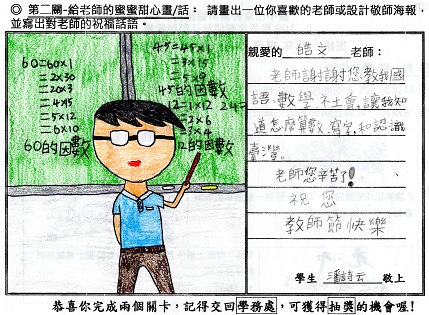 ◎ 第二關-給老師的蜜蜜甜心畫/話： 請畫出一位你喜歡的老師或設計敬師海報，
並寫出對老師的祝福話語。
60=60×1
=2×30
=20×3
=4×15
=5×12
=6×10
60的因數
45=45×1
=3×15
=5×9
45的因數
12=1×12
24=
=2×6
=3×4
12的因數
親愛的 皓文 老師：
老師謝謝您教我國
語、數學、社會，讓我知
道怎麼算數、寫字，和認識
臺灣。
老師您辛苦了!
祝 您
教師節快樂
學生 潘詩云 敬上
恭喜你完成兩個關卡，記得交回學務處，可獲得抽獎的機會喔!